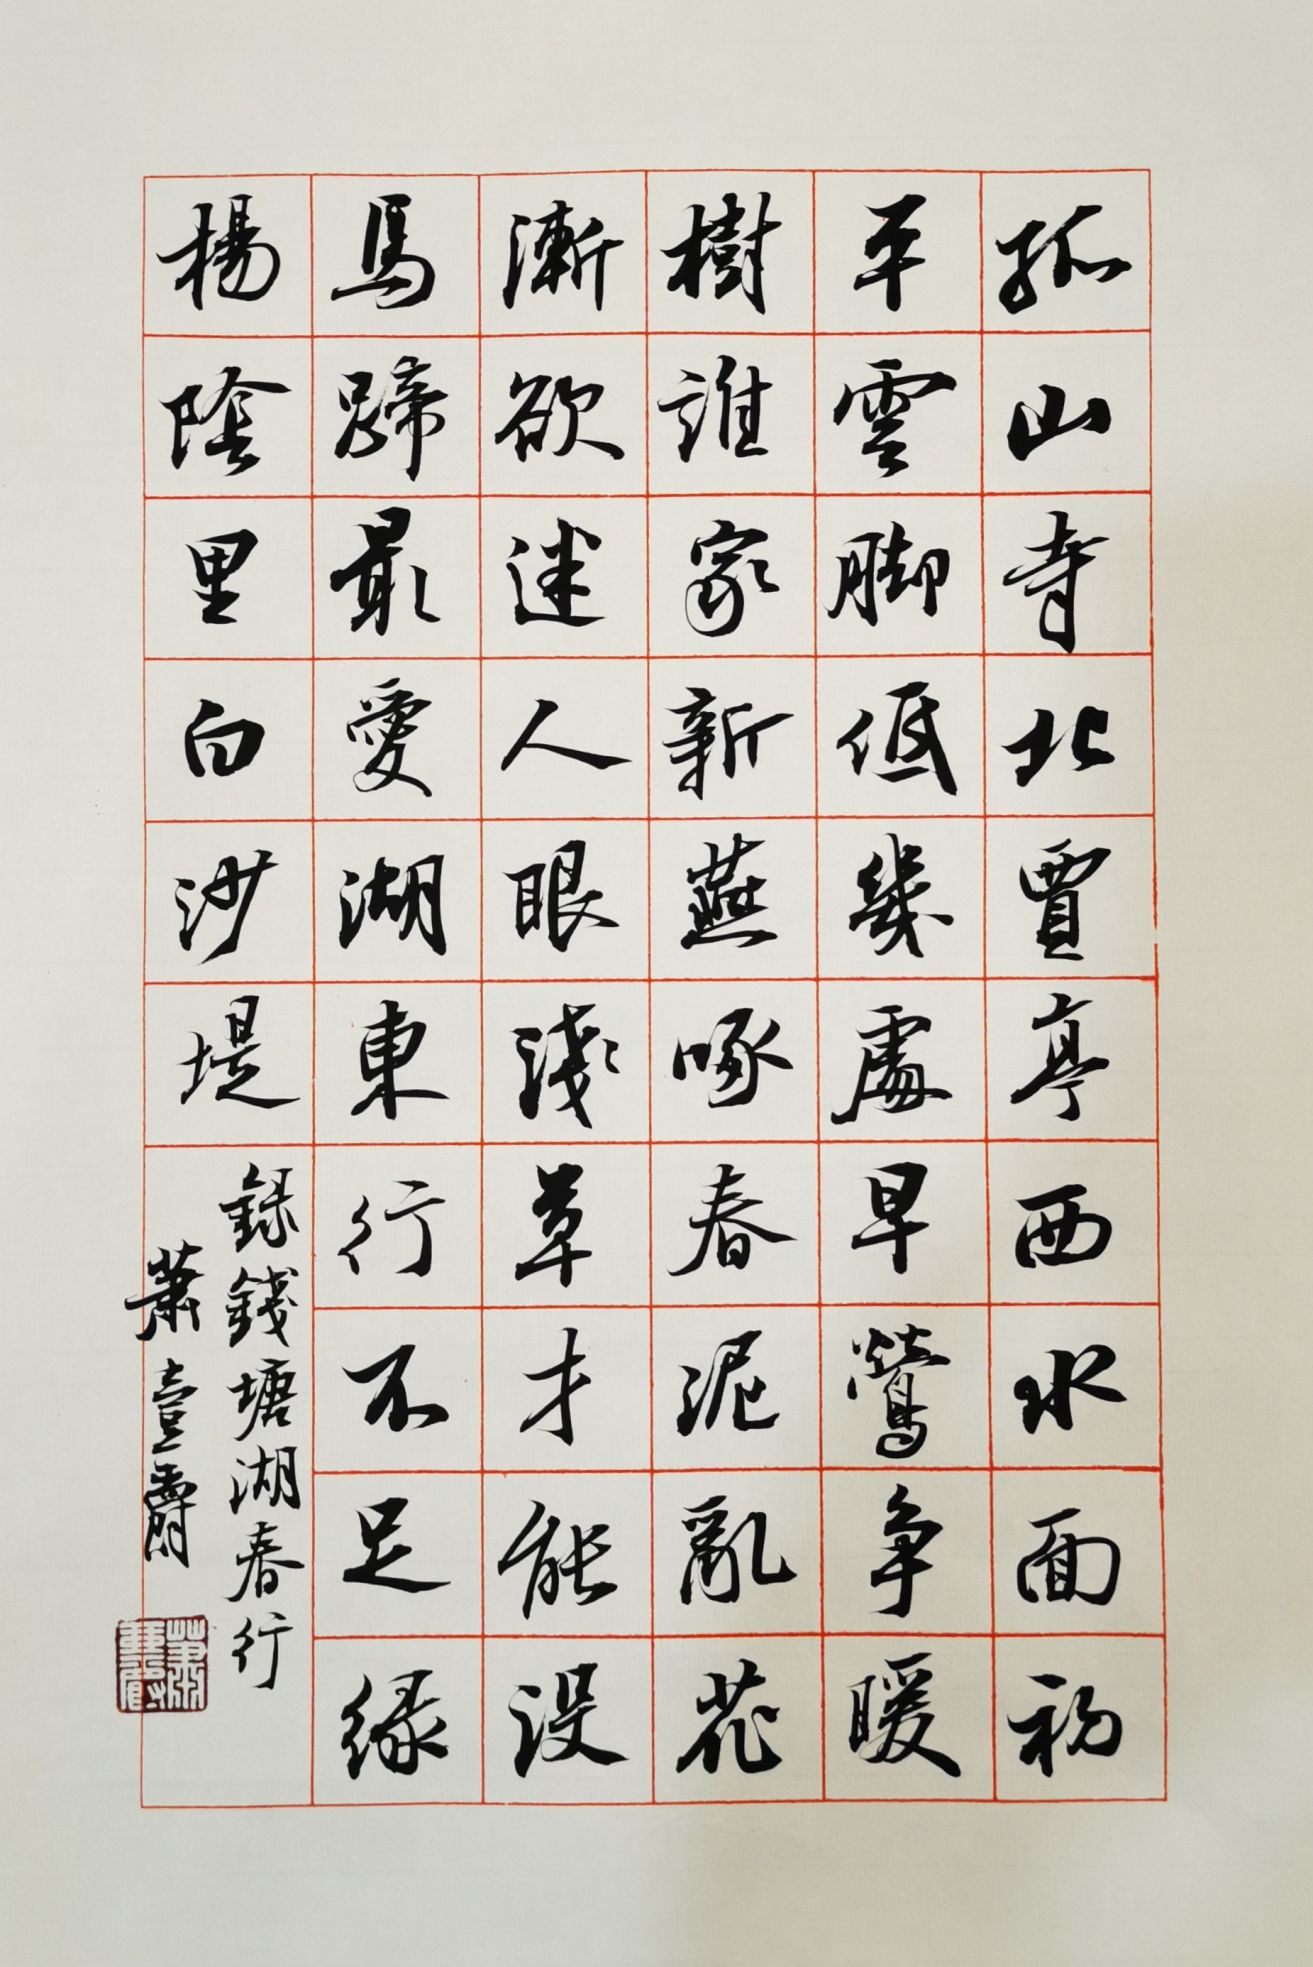 孤山寺北賈亭西水面初
平雲脚低幾處早鶯争暖
樹誰家新燕啄春泥亂花
漸欲迷人眼淺草才能没
馬蹄最愛湖東行不足緑
楊陰里白沙堤
録錢塘湖春行
蕭壹爵